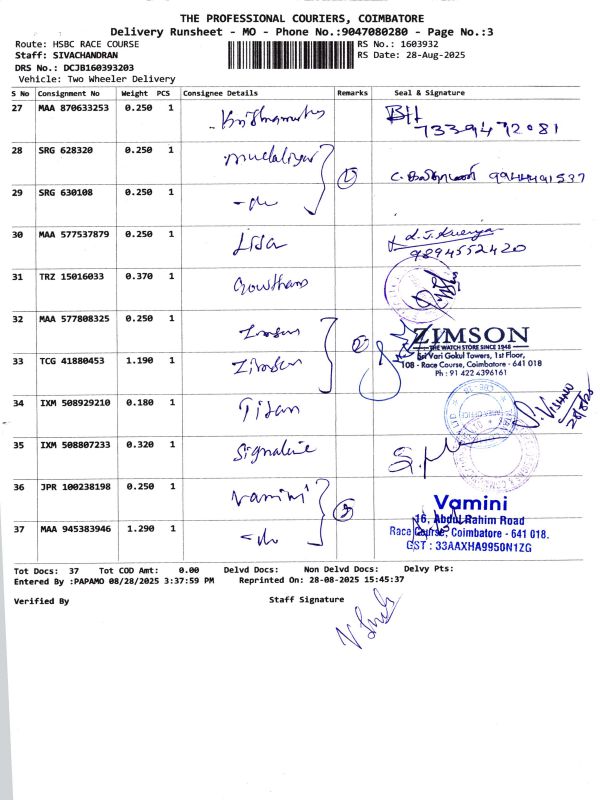 THE PROFESSIONAL COURIERS, COIMBATORE
Delivery Runsheet - MO - Phone No.:9047080280 - Page No.:3
Route: HSBC RACE COURSE RS No.: 1603932
Staff: SIVACHANDRAN RS Date: 28-Aug-2025
DRS No.: DCJB160393203
Vehicle: Two Wheeler Delivery
S No Consignment No Weight PCS Consignee Details Remarks Seal & Signature
27 MAA 870633253 0.250 1
7339472081
28 SRG 628320 0.250 1 mudaliyar
9944491537
29 SRG 630108 0.250 1 -do
30 MAA 577537879 0.250 1 Lisa
9894552420
31 TRZ 15016033 0.370 1 Gowtham
32 MAA 577808325 0.250 1 Zimson
ZIMSON
THE WATCH STORE SINCE 1948
Sri Vari Gokul Towers, 1st Floor,
108 - Race Course, Coimbatore - 641 018
Ph : 91 422 4396161
33 TCG 41880453 1.190 1 Zimson
34 IXM 508929210 0.180 1 Titan
D. Vishnu
28/8/25
35 IXM 508807233 0.320 1 Signature
36 JPR 100238198 0.250 1 Vamini
Vamini
16, Abdul Rahim Road
Race Course, Coimbatore - 641 018.
GST : 33AAXHA9950N1ZG
37 MAA 945383946 1.290 1 -do
Tot Docs: 37 Tot COD Amt: 0.00 Delvd Docs: Non Delvd Docs: Delvy Pts:
Entered By :PAPAMO 08/28/2025 3:37:59 PM Reprinted On: 28-08-2025 15:45:37
Verified By Staff Signature